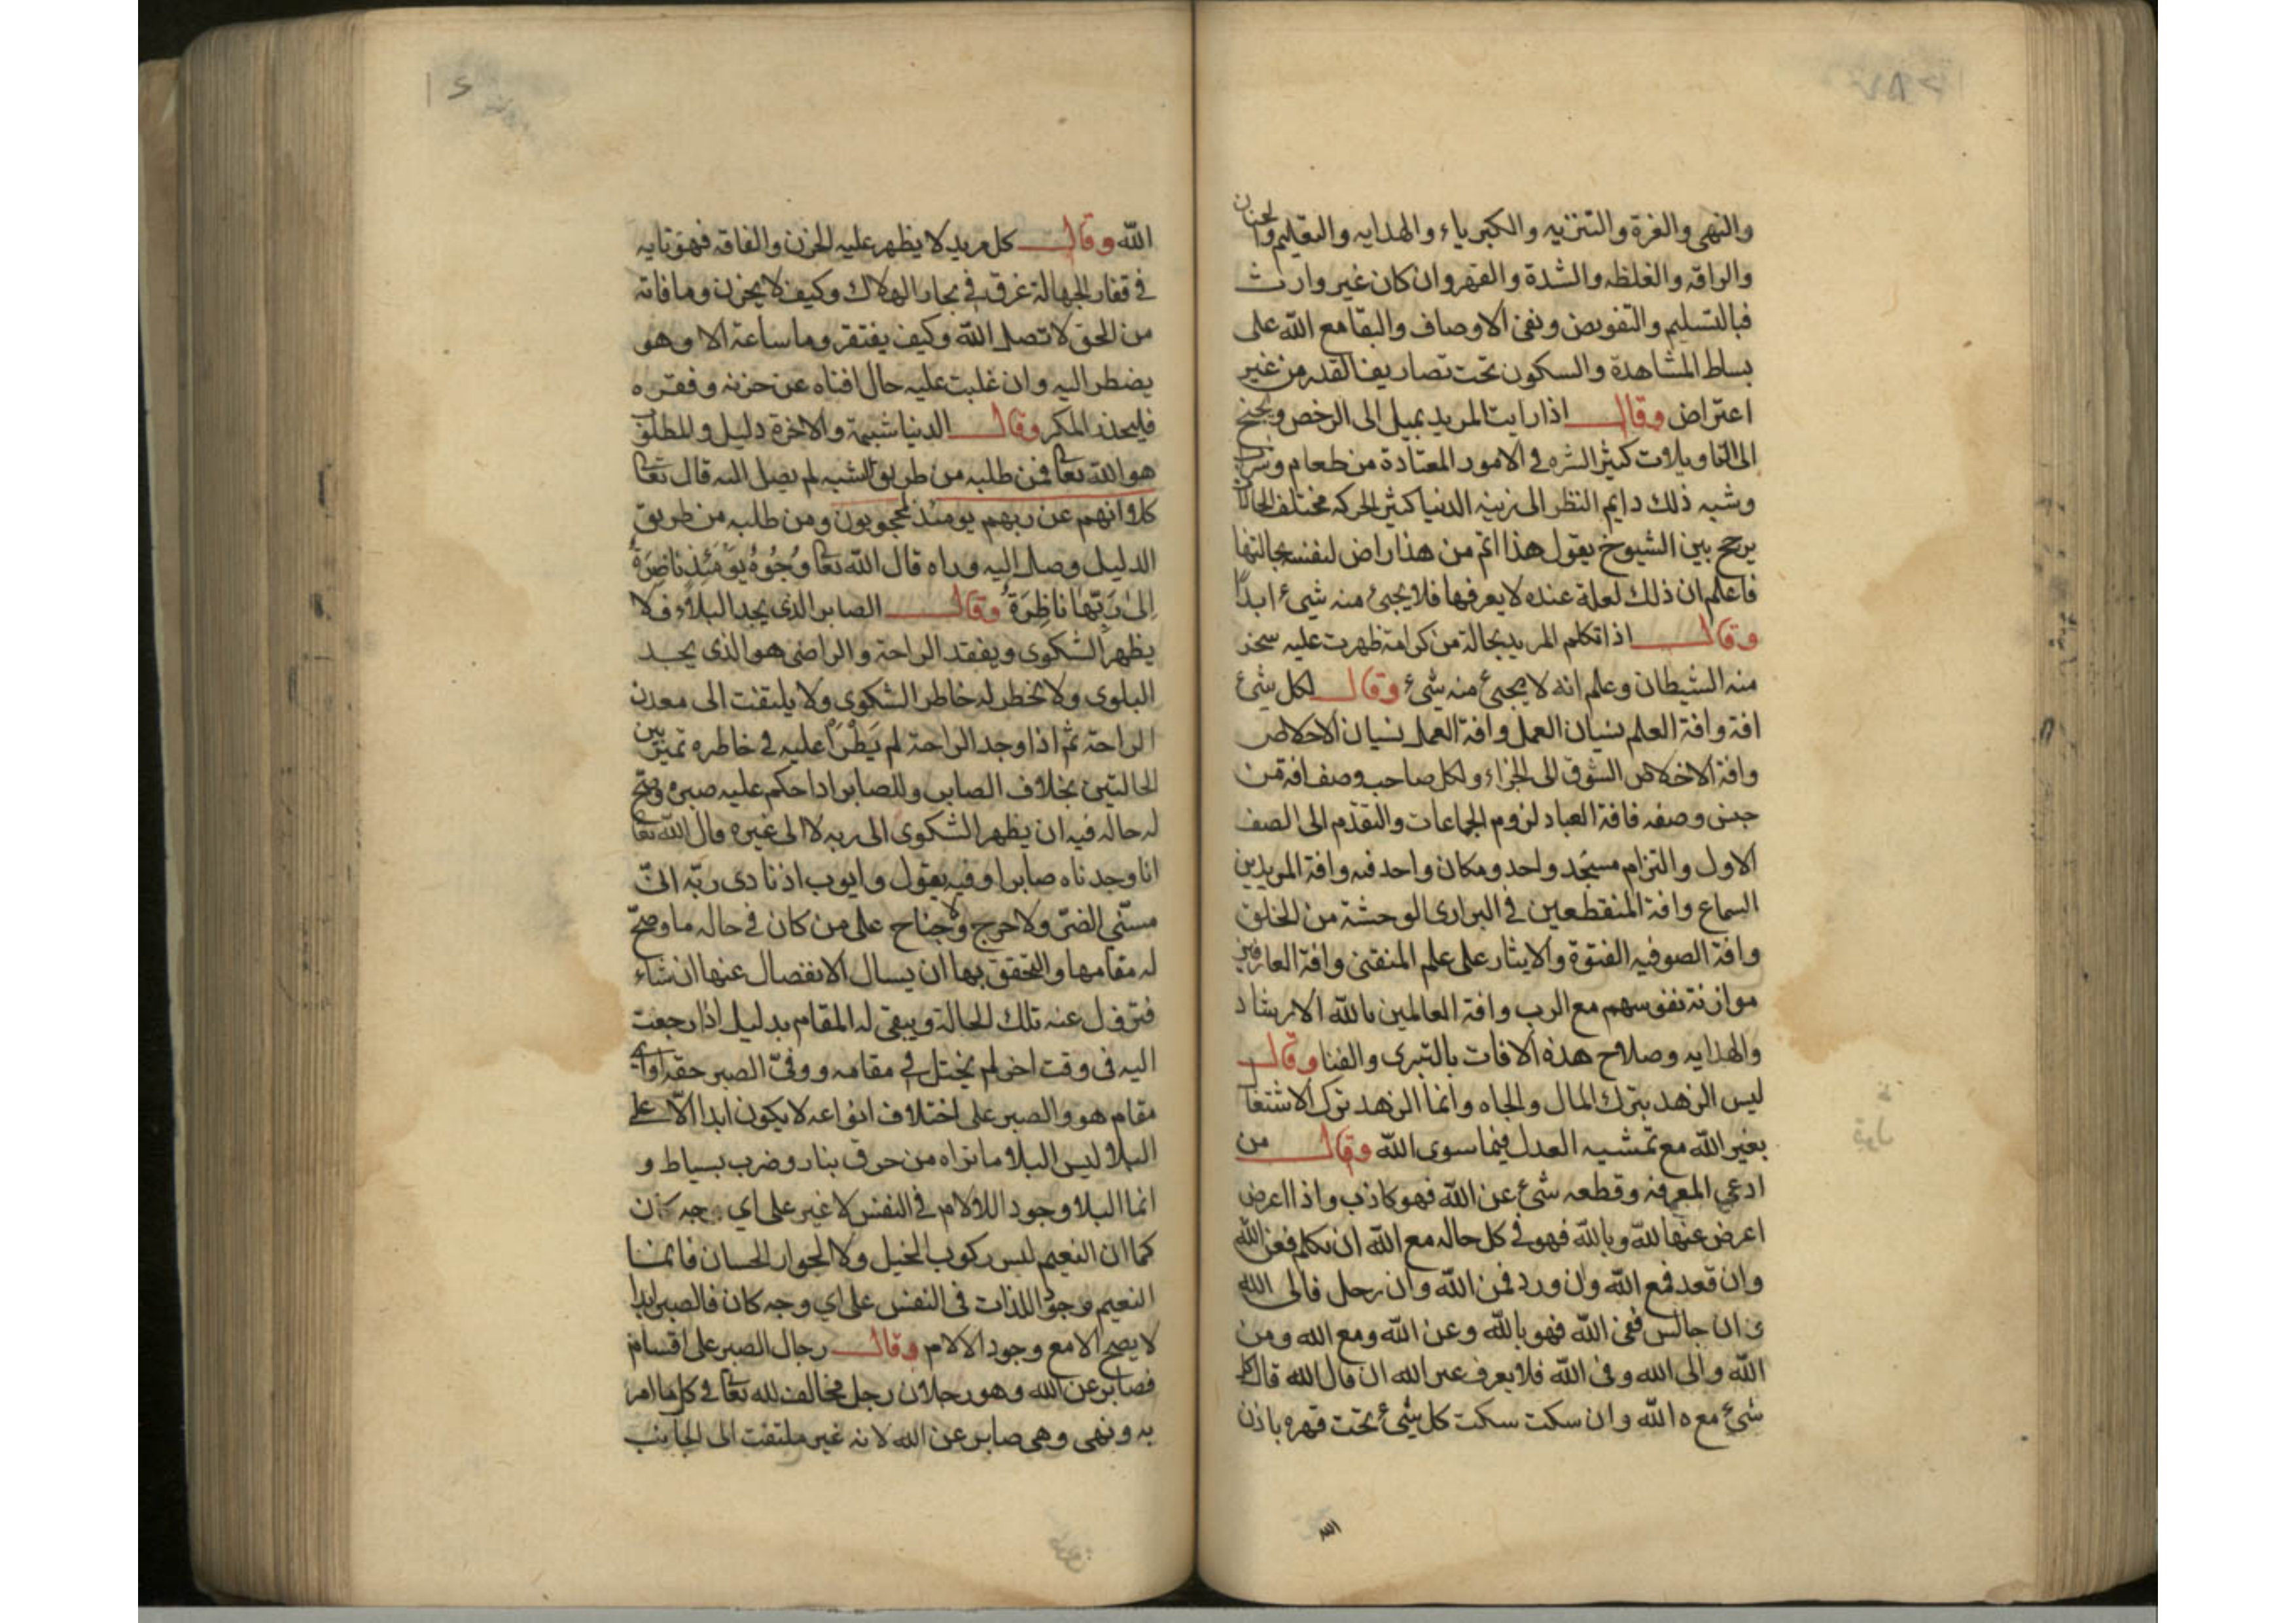 والنهى والغرة والتنزيه والكبرياء والهدايه والتعليم والحنان
والرافة والغلظه والشدة والقهر وان كان غير وارث
فبالتسليم والتفويض ونفى الاوصاف والبقا مع الله على
بساط المشاهدة والسكون تحت تصاريف القدر من غير
اعتراض وقال اذا رايت المريد يميل الى الرخص ويجنح
الى التاويلات كثير الشره فى الامور المعتادة من طعام وشراب
وشبه ذلك دايم النظر الى زينة الدنيا كثير الحركه مختلف الحالات
يرجح بين الشيوخ يقول هذا اتم من هذا راض لنفسه بحالتها
فاعلم ان ذلك لعلة عنده لا يعرفها فلا يجئ منه شئ ابدًا
وقال اذا تكلم المريد بحالة من كرامة ظهرت عليه سخر
منه الشيطان وعلم انه لا يجئ منه شئ وقال لكل شئ
افة وافة العلم نسيان العمل وافة العمل نسيان الاخلاص
وافة الاخلاص الشوق الى الجزاء ولكل صاحب وصف افة من
جنس وصفه فافة العباد لزوم الجماعات والتقدّم الى الصف
الاول والتزام مسجد واحد ومكان واحد فيه وافة المريدين
السماع وافة المنقطعين فى البرارى الوحشة من الخلق
وافة الصوفيه الفتوة والايثار على علم المنقتنى وافة العارفين
موازنة نفوسهم مع الرب وافة العالمين بالله الارشاد
والهدايه وصلاح هذه الافات بالتبرى والفنا وقال
ليس الزهد بترك المال والجاه وانما الزهد ترك الاشتغال
بغير الله مع تمشيه العدل فيما سوى الله وقال من
ادعى المعرفة وقطعه شئ عن الله فهو كاذب واذا اعرض
اعرض عنها لله وبالله فهو فى كل حاله مع الله ان تكلم فعن الله
وان قعد فمع الله وان ورد فمن الله وان رحل فالى الله
وان جالس ففى الله فهو بالله وعن الله ومع الله ومن
الله والى الله وفى الله فلا يعرف غير الله ان قال لله قال كل
شئ معه الله وان سكت سكت كل شئ تحت قهره باذن
الله
الله وقال كل مريد لا يظهر عليه الحزن والفاقه فهو تايه
فى قفار الجهالة غرق فى بحار الهلاك وكيف لا يحزن وما فاته
من الحق لا تصل الله وكيف يفتقر وما ساعة الا وهو
يضطر اليه وان غلبت عليه حال افناه عن حزنه وفقره
فليحذر المكر وقال الدنيا شبهة والاخرة دليل والمطلق
هو الله تعا فمن طلبه من طريق الشبه لم يصل اليه قال تعا
كلا انهم عن ربهم يومئذ لمحجوبون ومن طلبه من طريق
الدليل وصل اليه وراه قال الله تعا وُجُوهٌ يَوْمَئِذٍ نَاضِرَةٌ
اِلىٰ رَبِّهَا نَاظِرَةٌ وقال الصابر الذى يجد البلاء فلا
يظهر الشكوى ويفقد الراحة والراضى هو الذى يجد
البلوى ولا يخطر له خاطر الشكوى ولا يلتفت الى معدن
الراحة ثم اذا وجد الراحة لم يَطْرَأ عليه فى خاطره تميز بين
الحالتين بخلاف الصابر وللصابر اذا حكم عليه صبره وصح
له حاله فيه ان يظهر الشكوى الى ربه لا الى غيره قال الله تعا
انا وجدناه صابرا وفيه يقول وايوب اذ نادى ربّه انّى
مسّنى الضرّ ولا حرج ولا جناح على من كان فى حاله ما وصحّ
له مقامها والتحقق بها ان يسال الانفصال عنها ان شاء
فتزول عنه تلك الحالة ويبقى له المقام بدليل اذا رجعت
اليه فى وقت اخر لم يختل فى مقامه ووفى الصبر حقه واى
مقام هو والصبر على اختلاف انواعه لا يكون ابدا الّا على
البلا وليس البلا ما تراه من حرق بنار وضرب بسياط و
انما البلا وجود الالام فى النفس لا غير على اى وجه كان
كما ان النعيم ليس ركوب الخيل ولا الجوار الحسان فانما
النعيم وجود اللذات فى النفس على اى وجه كان فالصبر ابدا
لا يصح الا مع وجود الالام وقال رجال الصبر على اقسام
فصابر عن الله وهو رجلان رجل مخالف لله تعا فى كل ما امر
به ونهى وهى صابر عن الله لانه غير ملتفت الى الجانب